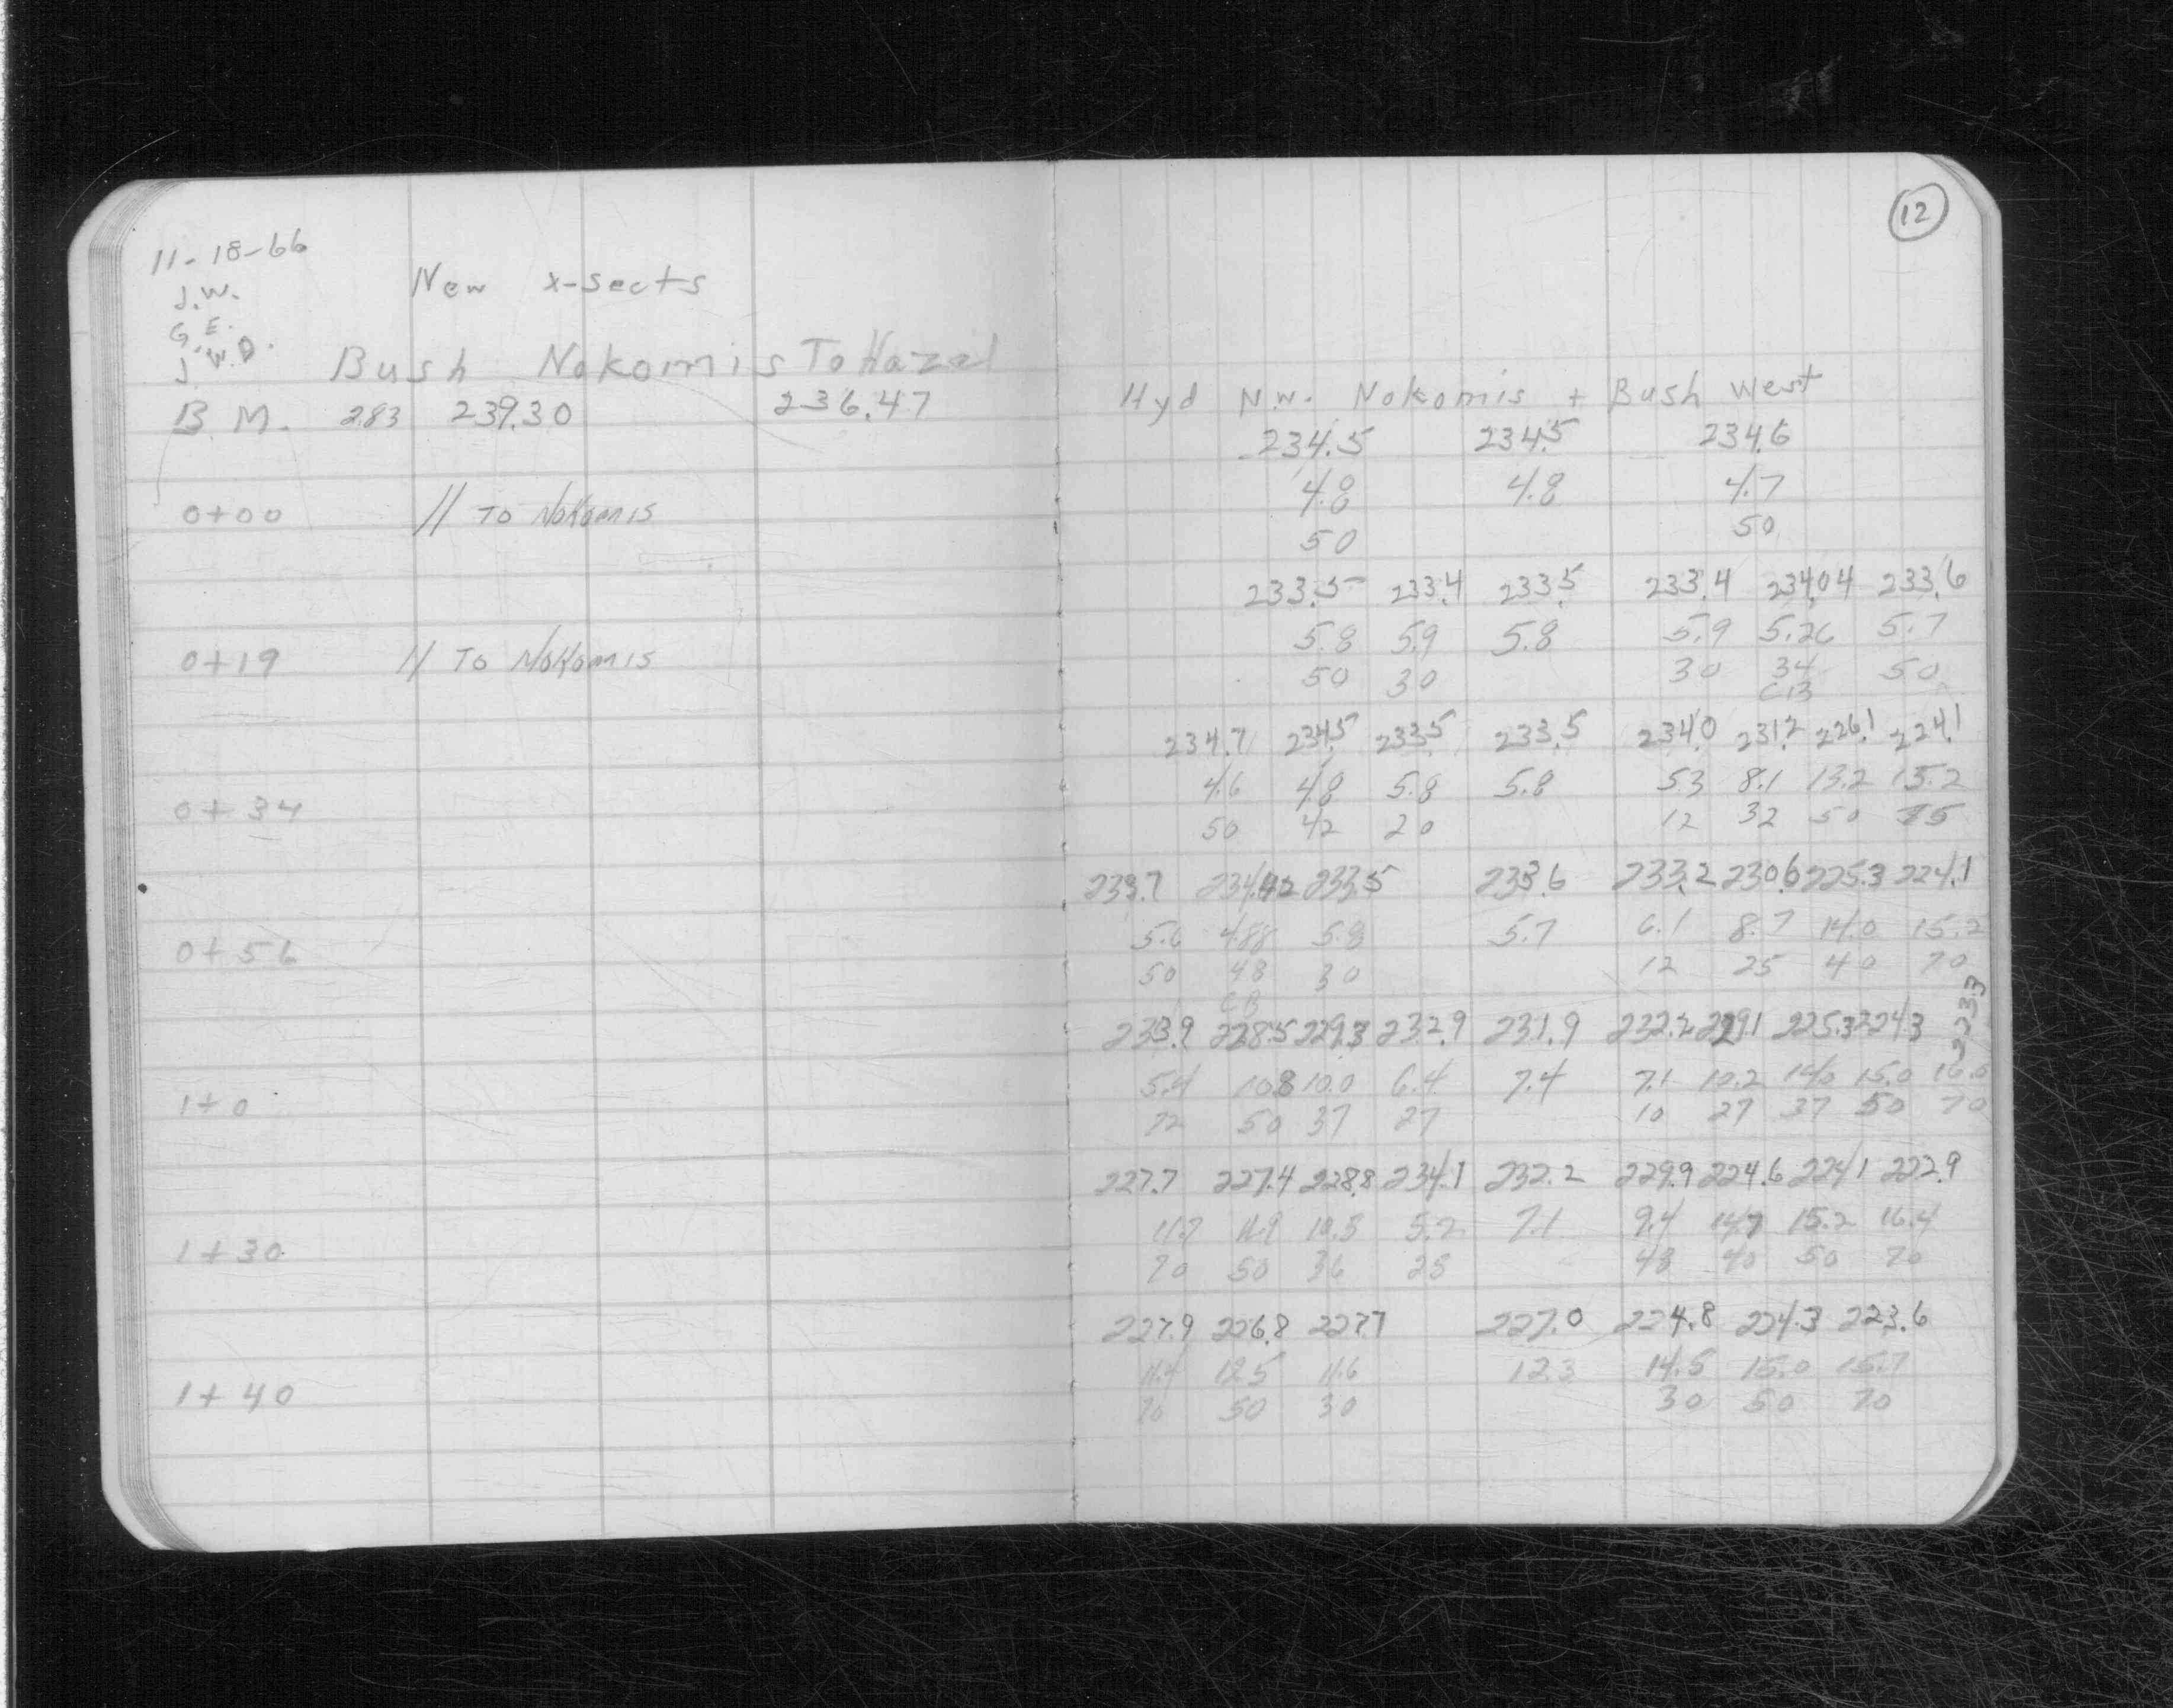 12
11-18-66
J.W.
New x-sects
G.E.
J.W.D.
Bush Nokomis To Hazel
Hyd N.W. Nokomis + Bush West
B.M. 2.83 239.30 236.47
234.5 234.5 234.6
4.8 4.8 4.7
0+00 // To Nokomis
50 50
233.5 233.4 233.5 233.4 234.04 233.6
5.8 5.9 5.8 5.9 5.26 5.7
0+19 // To Nokomis
50 30 30 34 50
CB
234.7 234.5 233.5 233.5 234.0 231.2 226.1 224.1
4.6 4.8 5.8 5.8 5.3 8.1 13.2 15.2
0+34
50 42 20 12 32 50 75
233.7 234.42 233.5 233.6 233.2 230.6 225.3 224.1
5.6 4.88 5.8 5.7 6.1 8.7 14.0 15.2
0+56
50 48 30 12 25 40 70
CB
233.9 228.5 229.3 232.9 231.9 232.2 229.1 225.3 224.3 223.3
5.4 10.8 10.0 6.4 7.4 7.1 10.2 14.0 15.0 16.0
1+0
72 50 37 27 10 27 37 50 70
227.7 227.4 228.8 234.1 232.2 229.9 224.6 224.1 222.9
11.7 11.9 10.5 5.2 7.1 9.4 14.7 15.2 16.4
1+30
70 50 36 28 40 50 70
227.9 226.8 227.7 227.0 224.8 224.3 223.6
11.4 12.5 11.6 12.3 14.5 15.0 15.7
1+40
70 50 30 30 50 70